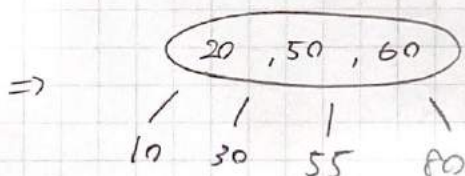 20 , 50 , 60
=>
10 30 55 80